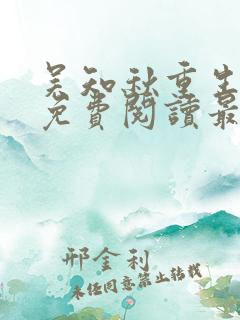 吴知秋重生
免費閱讀最
邢金利
未经同意禁止转载